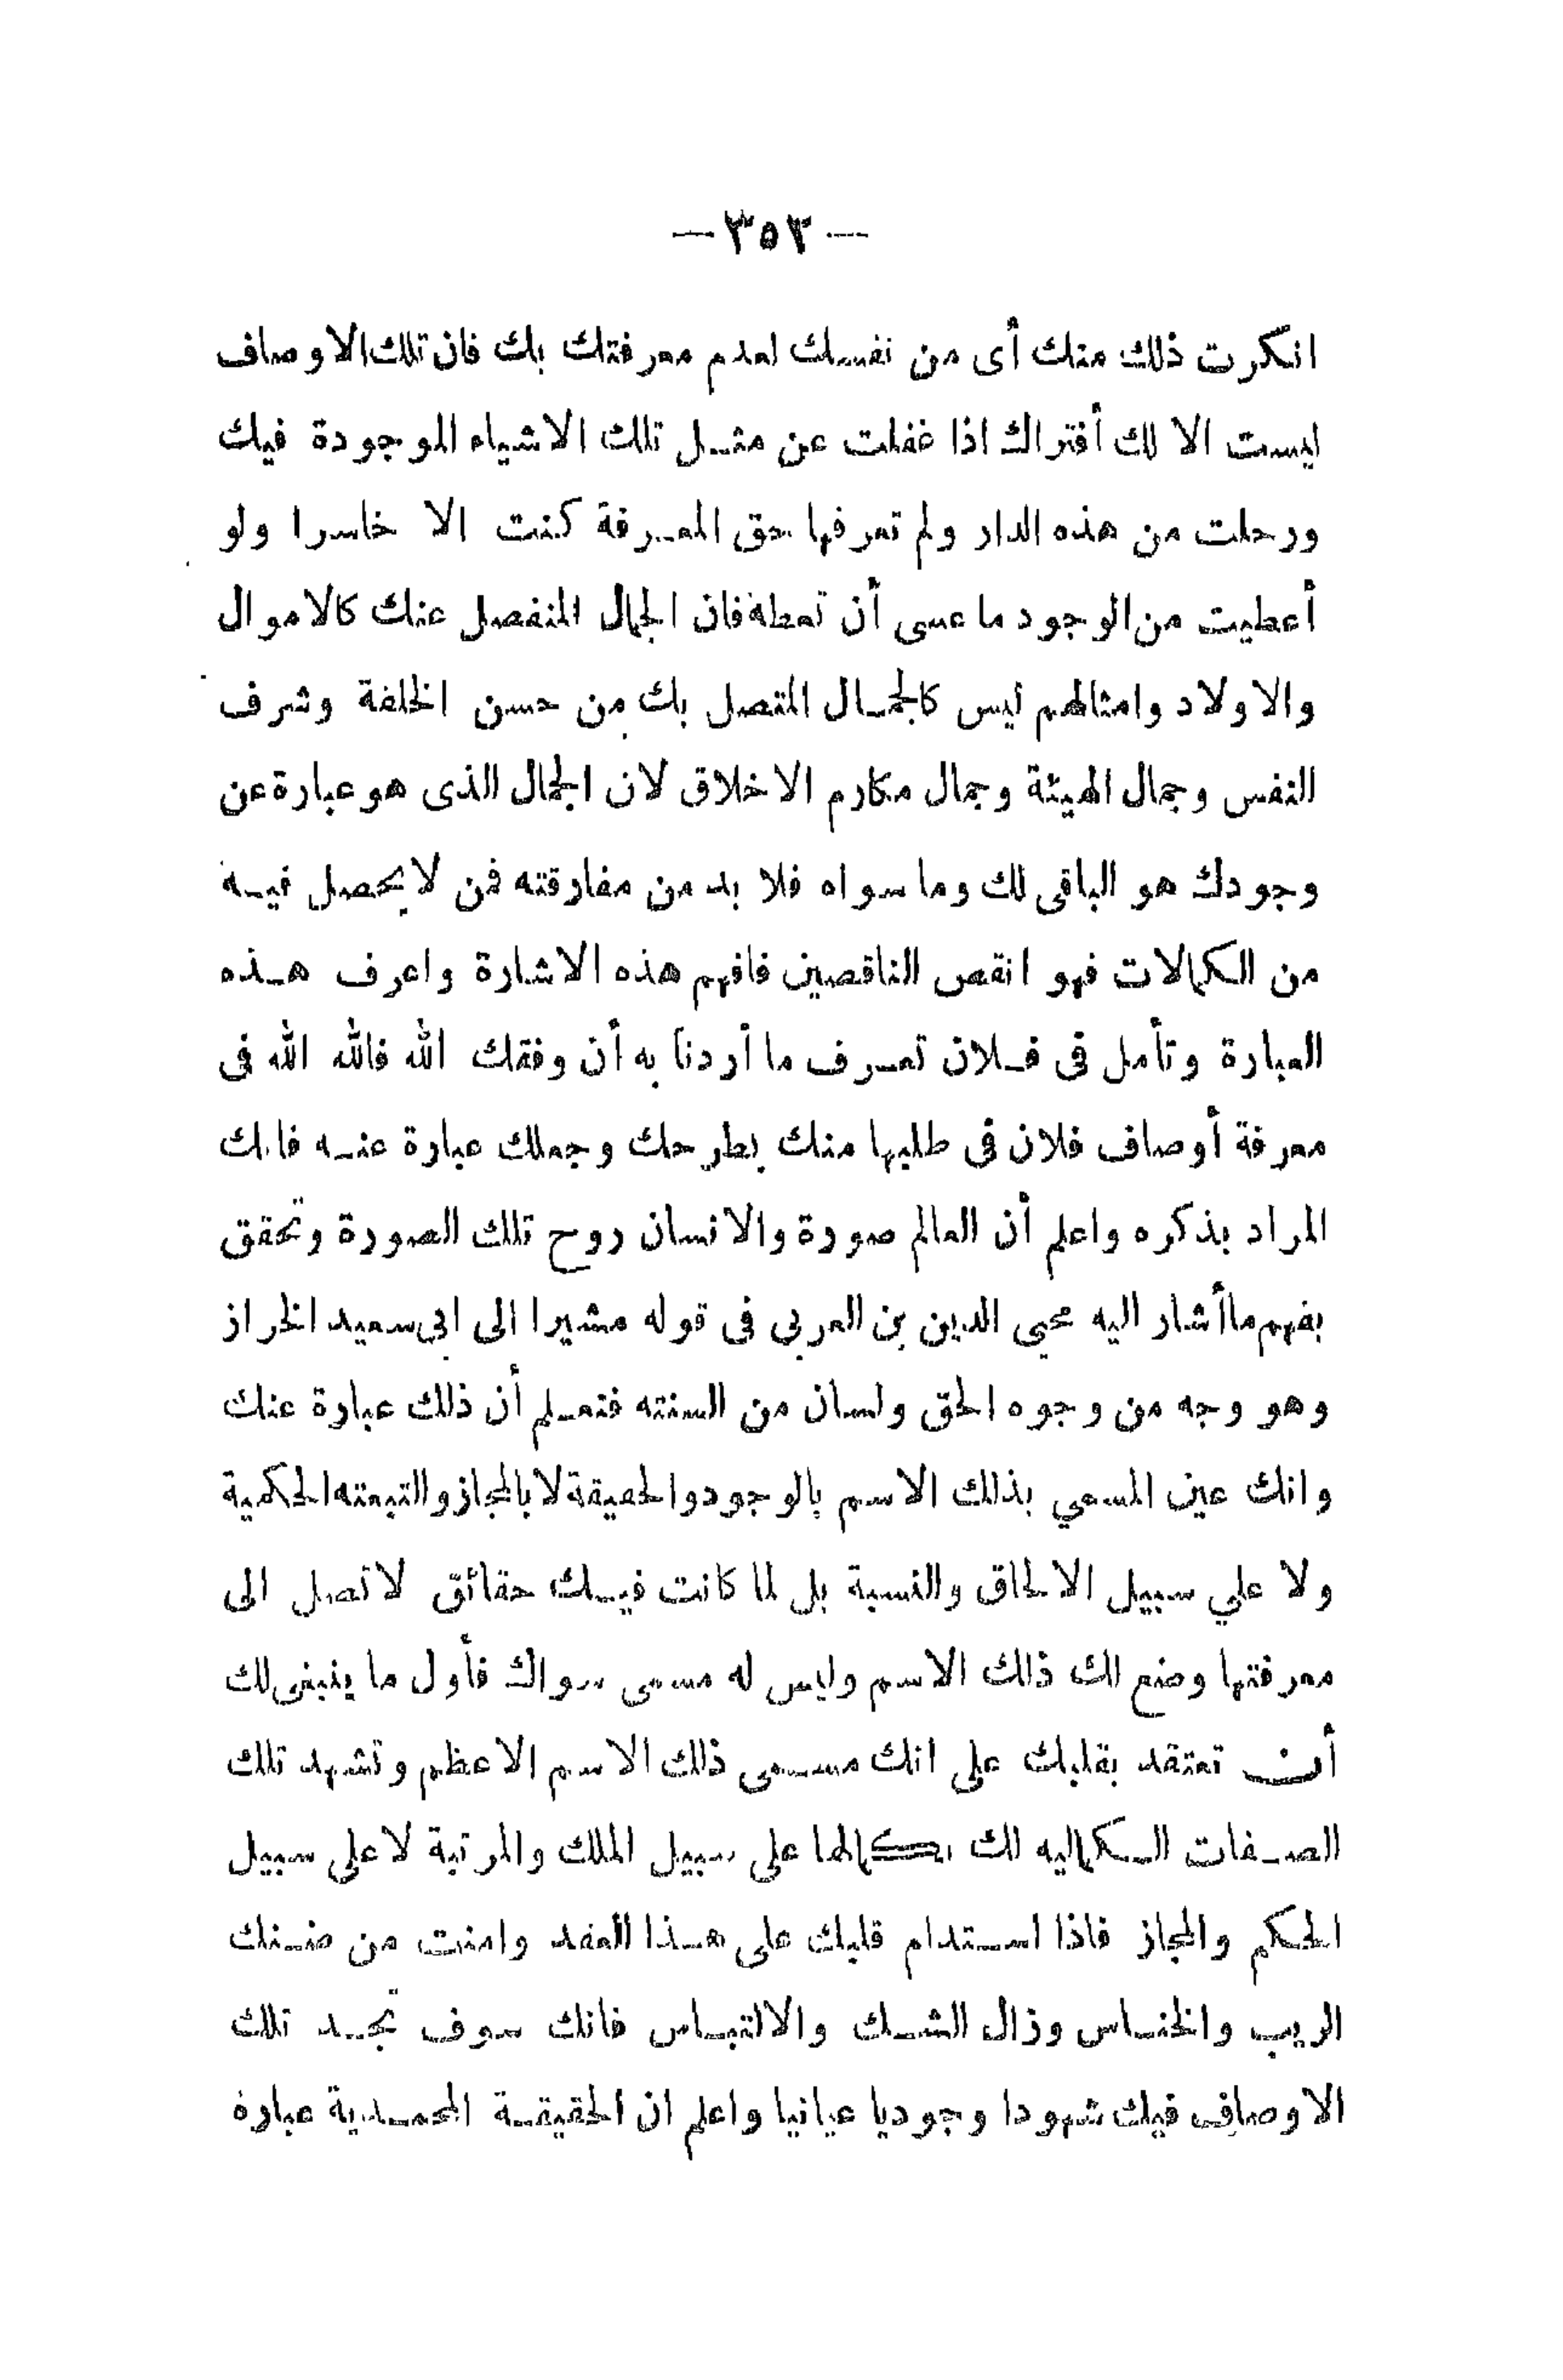 — ٣٥٣ —
انكرت ذلك منك أى من نفسك لعدم معرفتك بك فان تلك الاوصاف
ليست الا لك أفتراك اذا غفلت عن مثل تلك الاشياء الموجودة فيك
ورحلت من هذه الدار ولم تعرفها حق المعرفة كنت الا خاسرا ولو
أعطيت من الوجود ما عسى أن تعطه فان الجمال المنفصل عنك كالاموال
والاولاد وامثالهم ليس كالجمال المتصل بك من حسن الخلقة وشرف
النفس وجمال الهيئة وجمال مكارم الاخلاق لان الجمال الذى هو عبارة عن
وجودك هو الباقى لك وما سواه فلا بد من مفارقته فمن لا يحصل فيه
من الكمالات فهو انقص الناقصين فافهم هذه الاشارة واعرف هذه
العبارة وتأمل فى فلان تعرف ما أردنا به أن وفقك الله فالله الله فى
معرفة أوصاف فلان فى طلبها منك بطرحك وجعلك عبارة عنه فانك
المراد بذكره واعلم أن العالم صورة والانسان روح تلك الصورة وتحقق
بفهم ما أشار اليه محيى الدين بن العربي فى قوله مشيرا الى ابى سعيد الخراز
وهو وجه من وجوه الحق ولسان من السنته فتعلم أن ذلك عبارة عنك
وانك عين المسمي بذلك الاسم بالوجود والحقيقة لا بالمجاز والتبعته الحكمية
ولا علي سبيل الالحاق والنسبة بل لما كانت فيك حقائق لا تصل الى
معرفتها وضع لك ذلك الاسم وليس له مسمى سواك فأول ما ينبغى لك
أن تعتقد بقلبك على انك مسمى ذلك الاسم الاعظم وتشهد تلك
الصفات الكماليه لك بكمالها على سبيل الملك والمرتبة لا على سبيل
الحكم والمجاز فاذا استدام قلبك على هذا العقد وامنت من ضنك
الريب والخناس وزال الشك والالتباس فانك سوف تجد تلك
الاوصاف فيك شهودا وجوديا عيانيا واعلم ان الحقيقة المحمدية عبارة